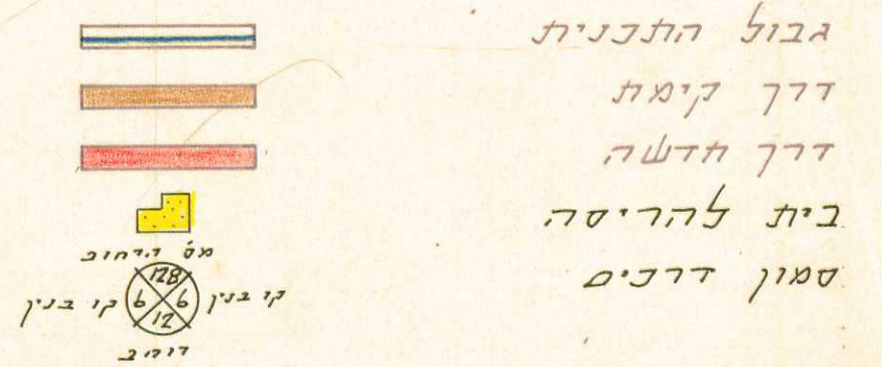 גבול התכנית
דרך קימת
דרך חדשה
בית להריסה
סמון דרכים
מס' הרחוב
128
קו בנין 6 6 קו בנין
12
רוחב